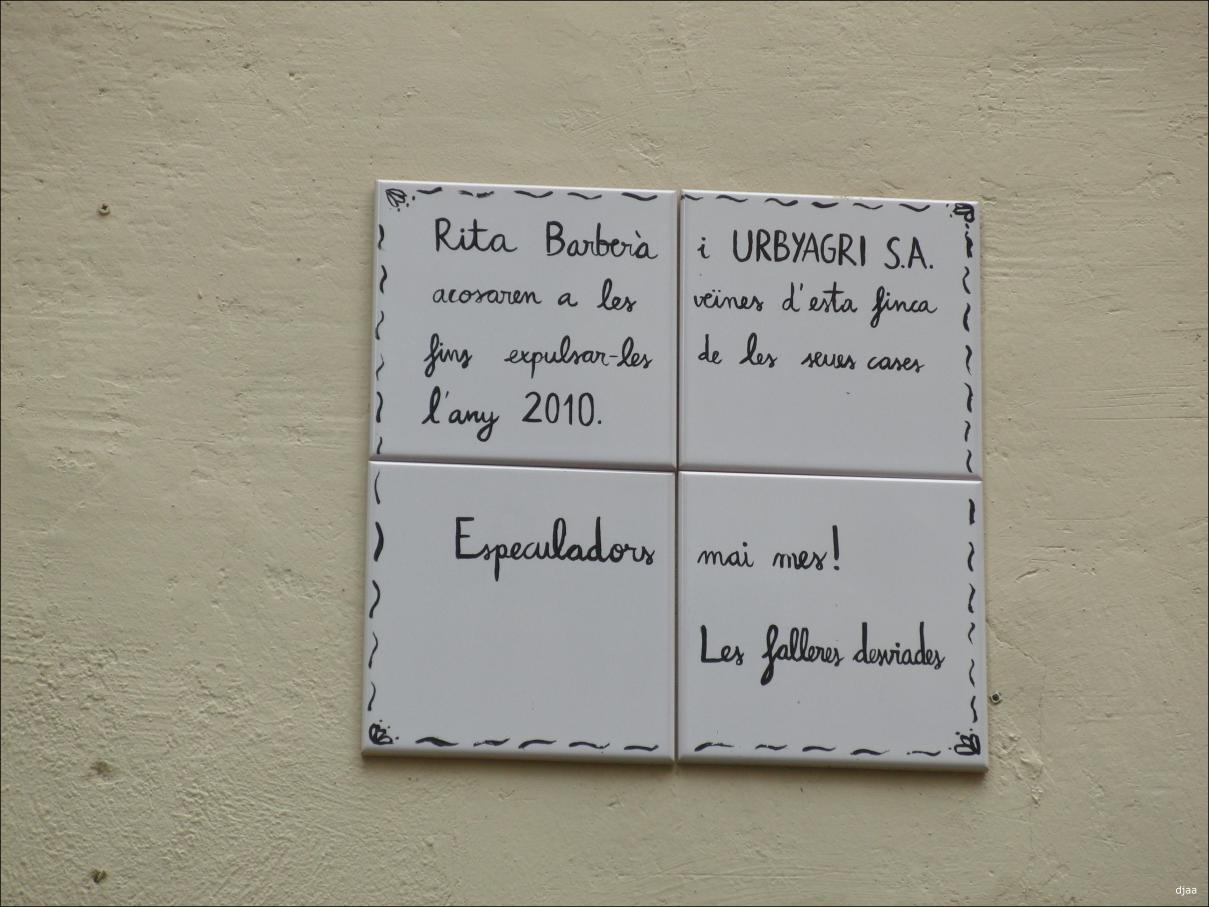 Rita Barberà i URBYAGRI S.A.
acosaren a les veïnes d'esta finca
fins expulsar-les de les seues cases
l'any 2010.
Especuladors mai mes!
Les falleres desviades
djaa